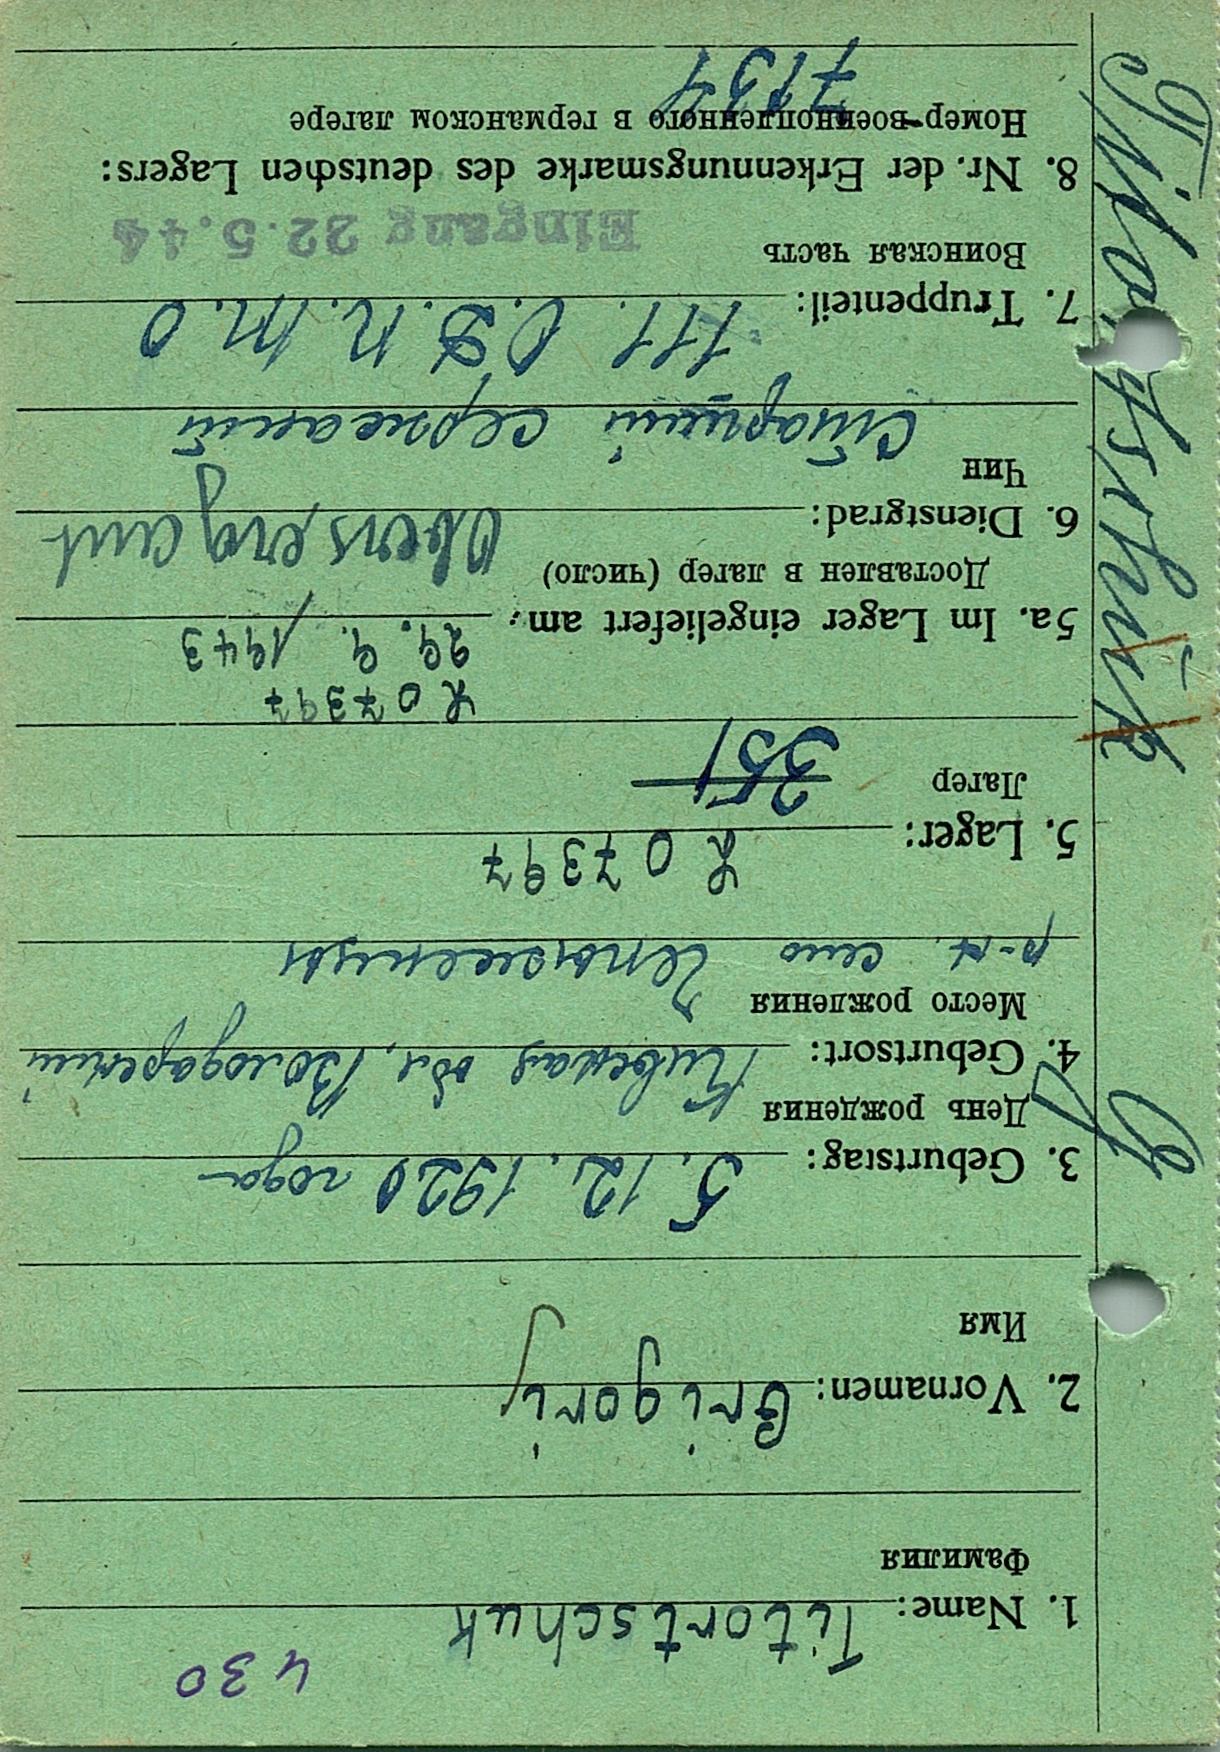 430
1. Name: Titortschuk
Фамилия
2. Vornamen: Grigorij
Имя
3. Geburtstag: 5.12.1920 года
День рождения
4. Geburtsort: Киевская обл. Володарский
Место рождения
р-н. село
L 07397
5. Lager:
Лагер 351
L 07397
29. 9. 1943
5a. Im Lager eingeliefert am:
Доставлен в лагер (число)
6. Dienstgrad: Obersergant
Чин
Старший сержант
7. Truppenteil: 111.
Воинская часть
Eingang 22.5.44
8. Nr. der Erkennungsmarke des deutschen Lagers:
Номер-военнопленного в германском лагере
7137